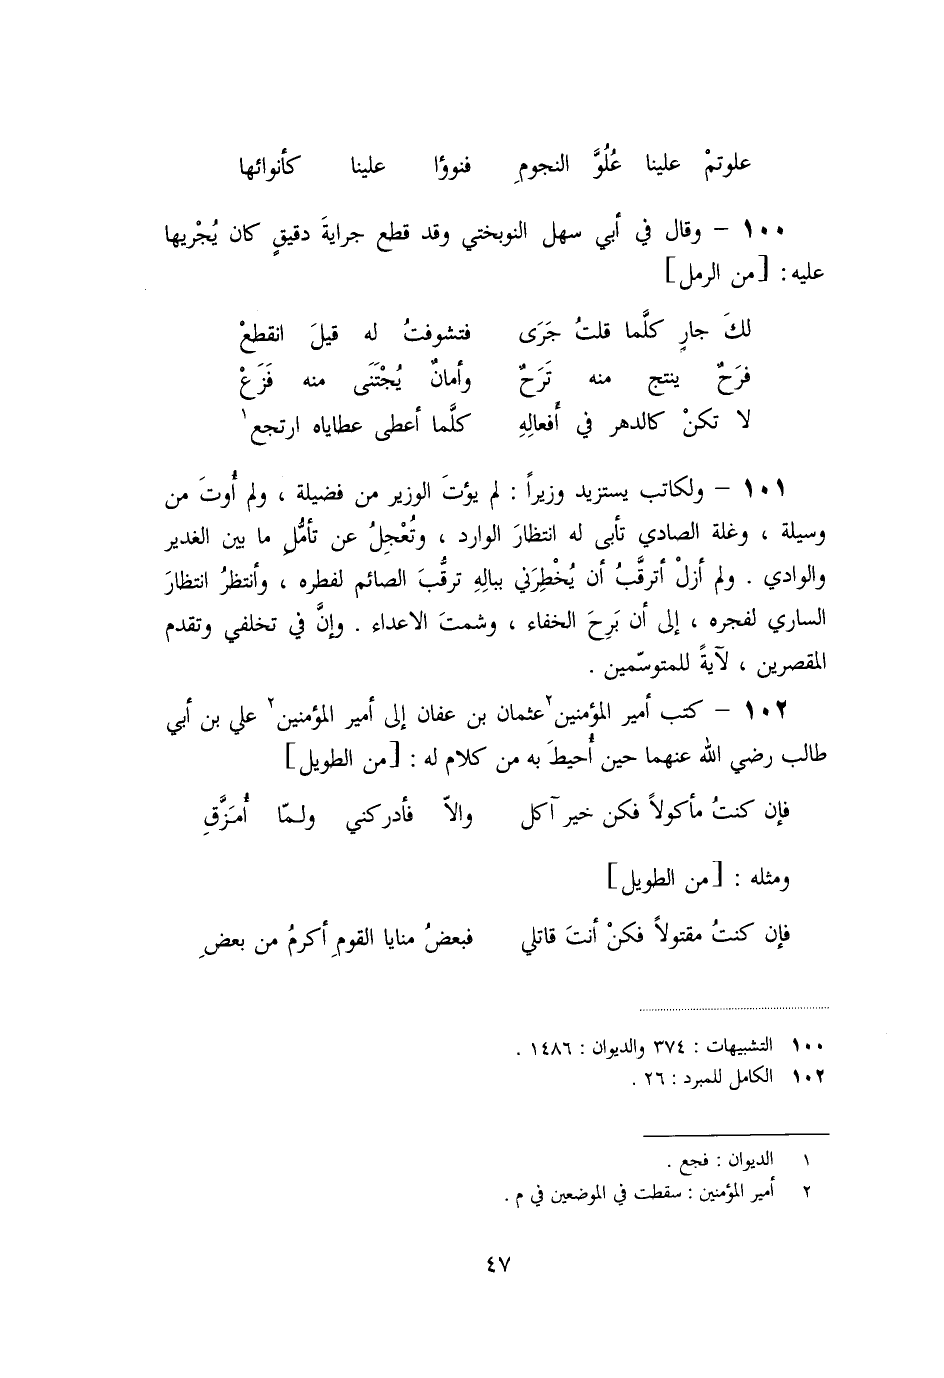 علوتمْ علينا عُلُوَّ النجومِ فنوؤا علينا كأنوائها
١٠٠ – وقال في أبي سهل النوبختي وقد قطع جرايةَ دقيقٍ كان يُجْريها
عليه : [من الرمل]
لكَ جارٍ كلَّما قلتُ جَرَى فتشوفتُ له قيلَ انقطعْ
فرَحٌ ينتج منه تَرَحٌ وأمانٌ يُجْتَنَى منه فَزَعْ
لا تكنْ كالدهر في أَفعالِهِ كلَّما أعطى عطاياه ارتجع١
١٠١ – ولكاتب يستزيد وزيراً : لم يؤتَ الوزير من فضيلة ، ولم أُوتَ من
وسيلة ، وغلة الصادي تأبى له انتظارَ الوارد ، وتُعْجِلُ عن تأمُّلِ ما بين الغدير
والوادي . ولم أزلْ أترقَّبُ أن يُخْطِرَني ببالِهِ ترقُّبَ الصائم لفطره ، وأنتظرُ انتظارَ
الساري لفجره ، إلى أن بَرِحَ الخفاء ، وشمتَ الاعداء . وإنَّ في تخلفي وتقدم
المقصرين ، لآيةً للمتوسّمين .
١٠٢ – كتب أمير المؤمنين٢ عثمان بن عفان إلى أمير المؤمنين٢ علي بن أبي
طالب رضي الله عنهما حين أُحيطَ به من كلام له : [من الطويل]
فإن كنتُ مأكولاً فكن خير آكل والاّ فأدركني ولمّا أُمَزَّقِ
ومثله : [من الطويل]
فإن كنتُ مقتولاً فكنْ أنتَ قاتلي فبعضُ منايا القومِ أكرمُ من بعضِ
١٠٠ التشبيهات : ٣٧٤ والديوان : ١٤٨٦ .
١٠٢ الكامل للمبرد : ٢٦ .
١ الديوان : فجع .
٢ أمير المؤمنين : سقطت في الموضعين في م .
٤٧